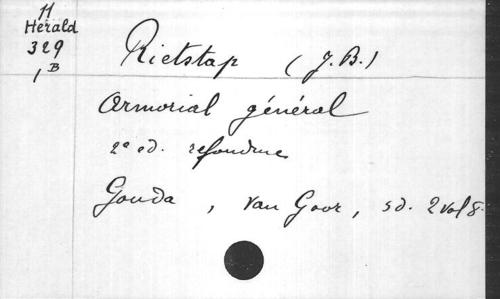 H
Herald
329
1B
Rietstap (J.B.)
Armorial général
2e ed. refondue
Gouda, van Goor, sd. 2 vol 8.